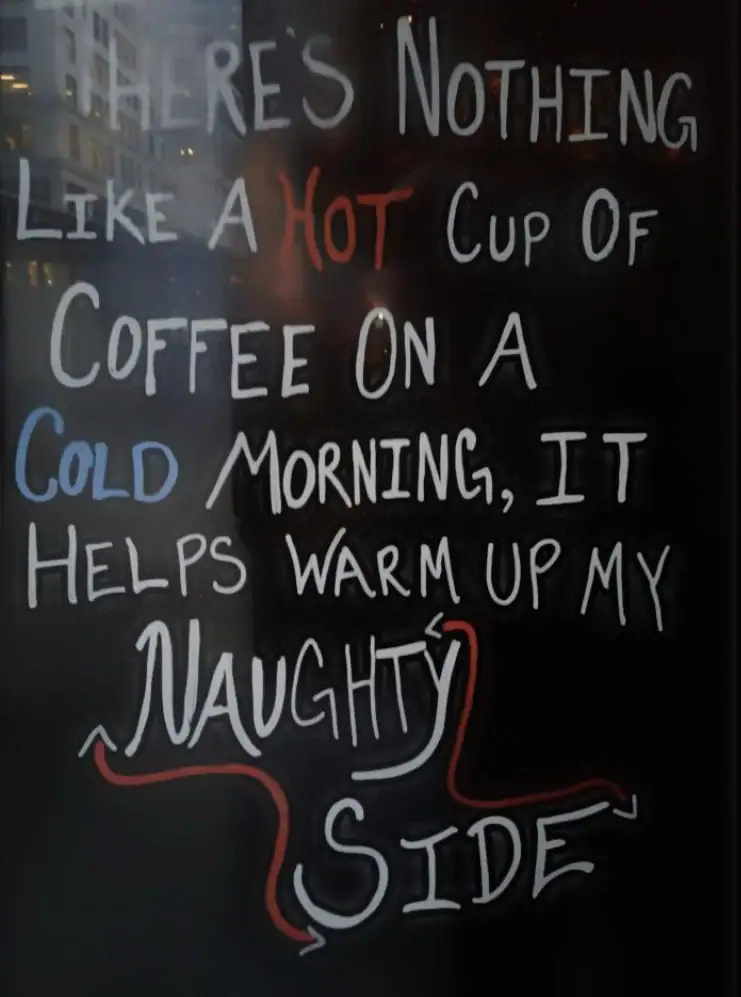 THERE'S NOTHING
LIKE A HOT CUP OF
COFFEE ON A
COLD MORNING, IT
HELPS WARM UP MY
NAUGHTY
SIDE